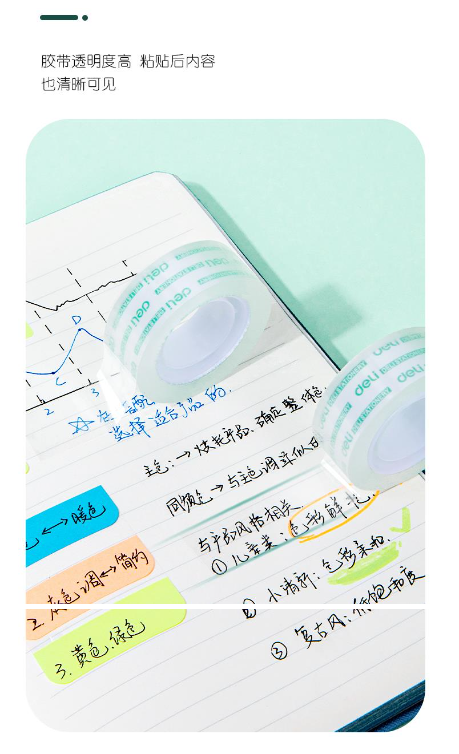 胶带透明度高 粘贴后内容
也清晰可见
deli
deli
deli
deli
D
C
2
3
选择适合产品的.
主色:→烘托产品.确定整体色
同频色→与主色调
与产品风格相关
①儿童类:色彩鲜艳.
②小清新:色彩柔和.
③复古风:低饱和度
色↔暖色
2.灰色调↔简约
3.黄色.绿色